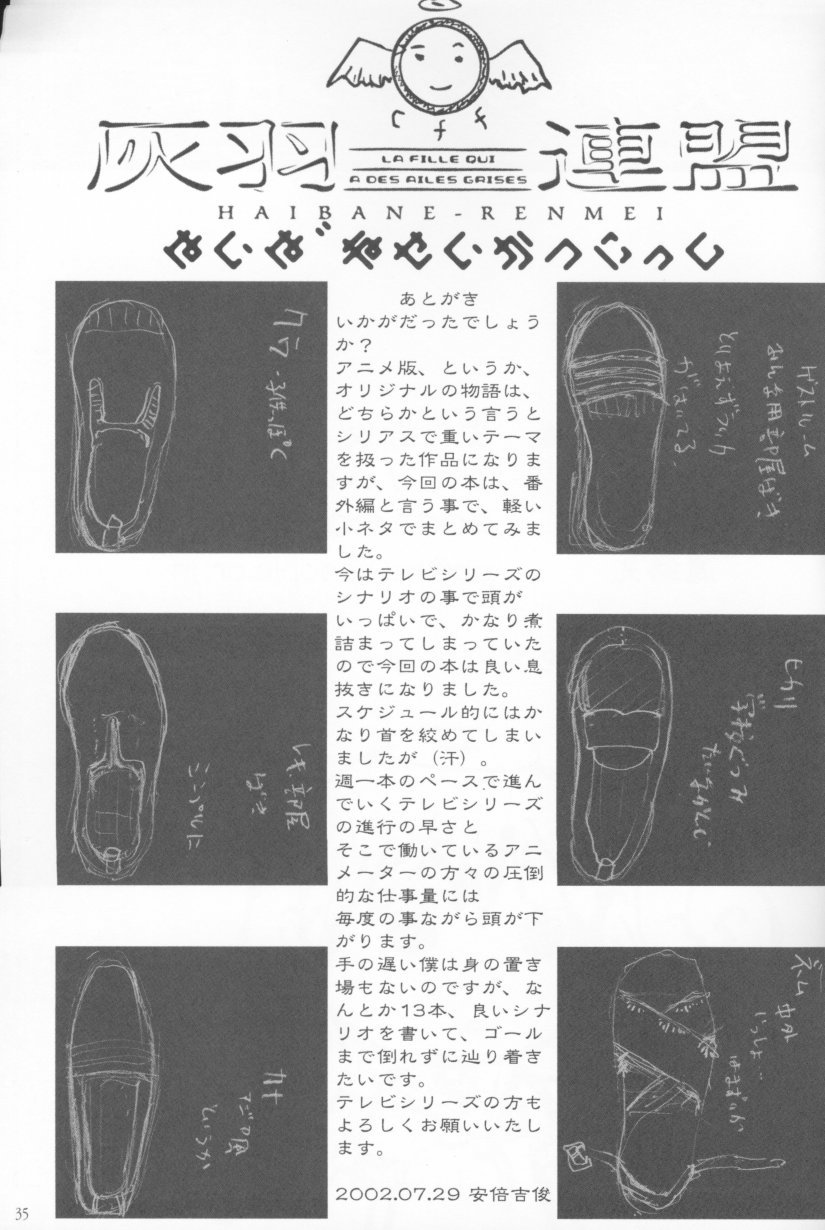 cff
灰羽連盟
LA FILLE QUI
A DES AILES GRISES
HAIBANE-RENMEI
はいばねせいかつにっし
クラ
子供っぽく
あとがき
いかがだったでしょう
か？
アニメ版、というか、
オリジナルの物語は、
どちらかという言うと
シリアスで重いテーマ
を扱った作品になりま
すが、今回の本は、番
外編と言う事で、軽い
小ネタでまとめてみま
した。
今はテレビシリーズの
シナリオの事で頭が
いっぱいで、かなり煮
詰まってしまっていた
ので今回の本は良い息
抜きになりました。
スケジュール的にはか
なり首を絞めてしまい
ましたが（汗）。
週一本のペースで進ん
でいくテレビシリーズ
の進行の早さと
そこで働いているアニ
メーターの方々の圧倒
的な仕事量には
毎度の事ながら頭が下
がります。
手の遅い僕は身の置き
場もないのですが、な
んとか13本、良いシナ
リオを書いて、ゴール
まで倒れずに辿り着き
たいです。
テレビシリーズの方も
よろしくお願いいたし
ます。
2002.07.29 安倍吉俊
ゲストルーム
みんな用部屋ばき
とりあえずラッカ
がはいてる。
レキ 部屋
ばき
シンプルに
ヒカリ
カナ
ネム
35